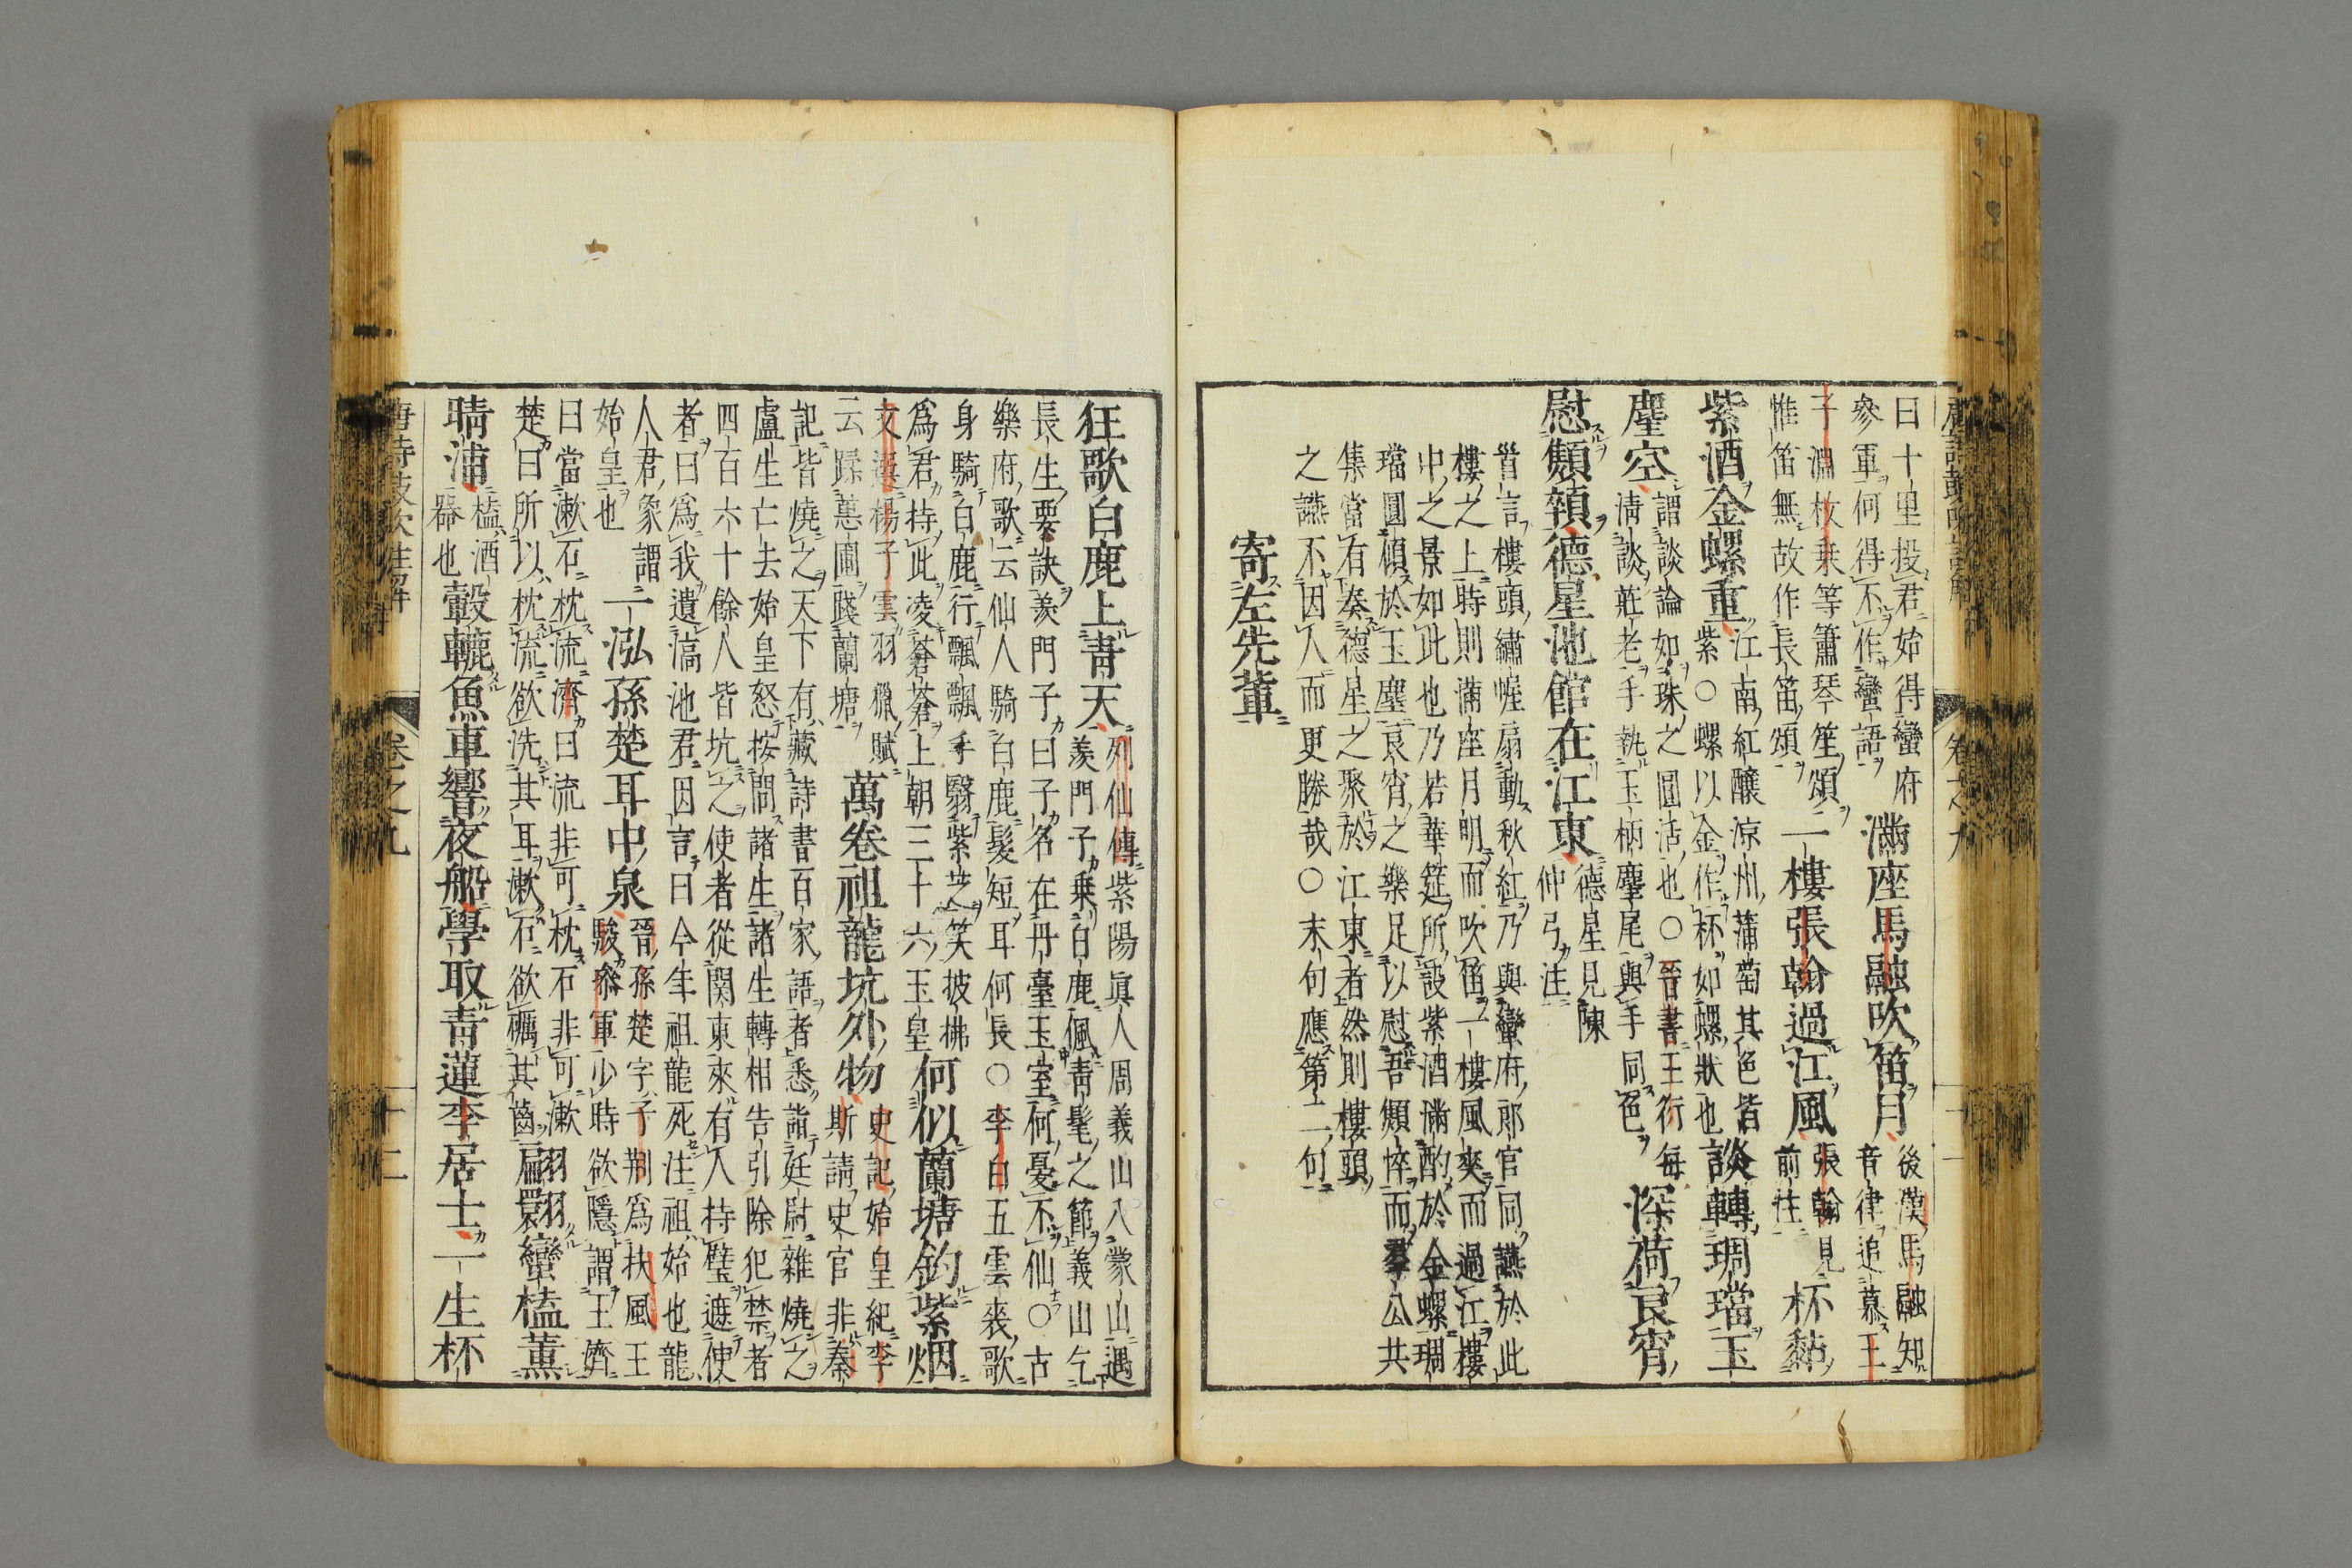 曰十里投君始得蠻府
參軍何得不作蠻語
滿座馬融吹笛月
後漢馬融知
音律追慕王
子淵枚乗等簫琴笙頌
惟笛無故作長笛頌
一樓張翰過江風
張翰見
前注
杯黏
紫酒金螺重
江南紅釀涼州蒲萄其色皆
紫○螺以金作杯如螺狀也
談轉琱璫玉
麈空
謂談論如珠之圓活也○晉書王衍每
清談莊老手執玉柄麈尾與手同色
深荷良宵
慰顦顇德星池館在江東
德星見陳
仲弓注
首言樓頭繡幄扇動秋紅乃與蠻府郎官同讌於此
樓之上時則滿座月明而吹笛一樓風爽而過江樓
中之景如此也乃若華筵所設紫酒滿酌於金螺琱
璫圓傾於玉麈良宵之樂足以慰吾顦悴而羣公共
集當有奏德星之聚於江東者然則樓頭
之讌不因人而更勝哉○末句應第二句
寄左先輩
卷之九
狂歌白鹿上青天
列仙傳紫陽眞人周義山入蒙山遇
羨門子乗白鹿佩青髦之節義山乞
長生要訣羨門子曰子名在丹臺玉室何憂不仙○古
樂府歌云仙人騎白鹿髮短耳何長○李白五雲裘歌
身騎白鹿行飄飄手翳紫芝笑披拂
爲君持此凌蒼蒼上朝三十六玉皇
何似蘭塘釣紫烟
文選楊子雲羽獵賦
云蹂蕙圃踐蘭塘
萬卷祖龍坑外物
史記始皇紀李
斯請史官非秦
記皆燒之天下有藏詩書百家語者悉詣廷尉雜燒之
盧生亡去始皇怒按問諸生諸生轉相告引除犯禁者
四百六十餘人皆坑之使者從関東來有人持璧遮使
者曰爲我遺滈池君因言曰今年祖龍死注祖始也龍
人君象謂
始皇也
一泓孫楚耳中泉
晉孫楚字子荆爲扶風王
駿參軍少時欲隱謂王濟
曰當漱石枕流濟曰流非可枕石非可漱
楚曰所以枕流欲洗其耳漱石欲礪其齒
翩翩蠻榼薰
晴浦
榼酒
器也
轂轆魚車響夜船學取青蓮李居士一生杯
唐詩鼓吹註解
卷之九
十二